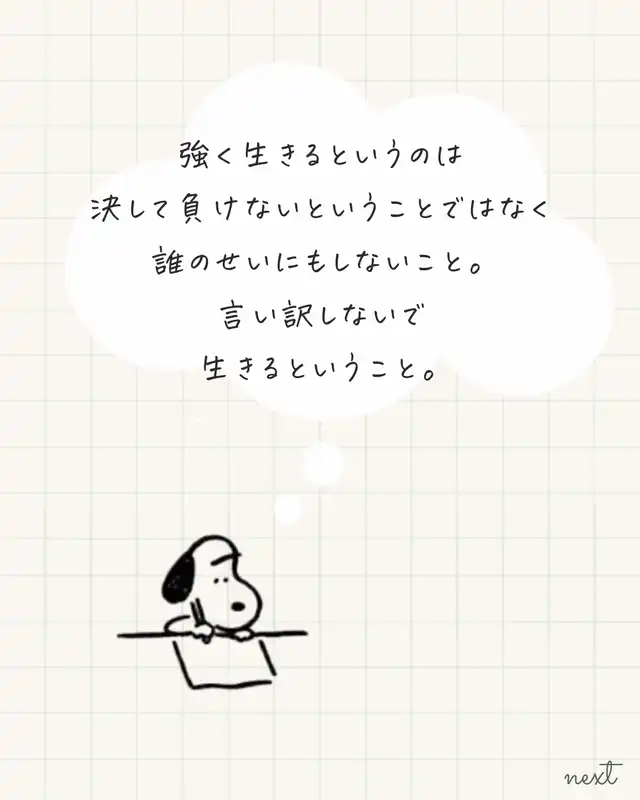 強く生きるというのは
決して負けないということではなく
誰のせいにもしないこと。
言い訳しないで
生きるということ。
next